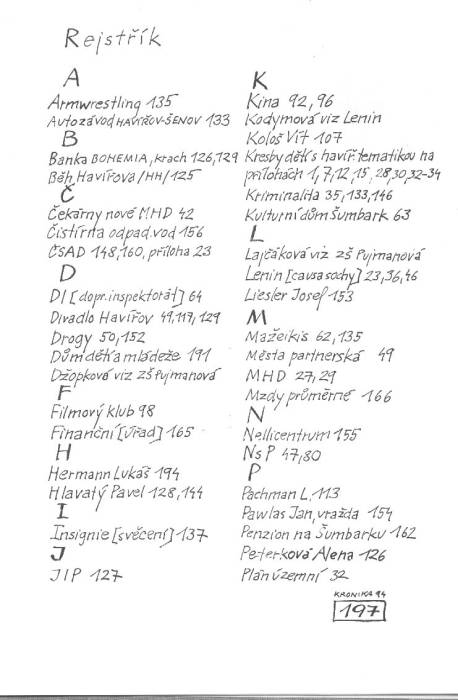 Rejstřík
A
Armwrestling 135
Autozávod HAVÍŘOV-ŠENOV 133
B
Banka BOHEMIA, krach 126,129
Běh Havířova /HH/ 125
Č
Čekárny nové MHD 42
Čistírna odpad.vod 156
ČSAD 148,160, příloha 23
D
DI [dopr.inspektorát] 64
Divadlo Havířov 49,117,129
Drogy 50,152
Dům dětí a mládeže 191
Džopková viz ZŠ Pujmanová
F
Filmový klub 98
Finanční [úřad] 165
H
Hermann Lukáš 194
Hlavatý Pavel 128,144
I
Insignie [svěcení] 137
J
JIP 127
K
Kina 92,96
Kodymová viz Lenin
Kološ Vít 107
Kresby dětí s havíř.tematikou na
přílohách 1,7,12,15,28,30,32-34
Kriminalita 35,133,146
Kulturní dům Šumbark 63
L
Lajčáková viz ZŠ Pujmanová
Lenin [causa sochy] 23,36,46
Liesler Josef 153
M
Mažeikis 62,135
Města partnerská 49
MHD 27,29
Mzdy průměrné 166
N
Nellicentrum 155
NsP 47,80
P
Pachman L. 113
Pawlas Jan, vražda 154
Penzion na Šumbarku 162
Peterková Alena 126
Plán územní 32
KRONIKA 94
197